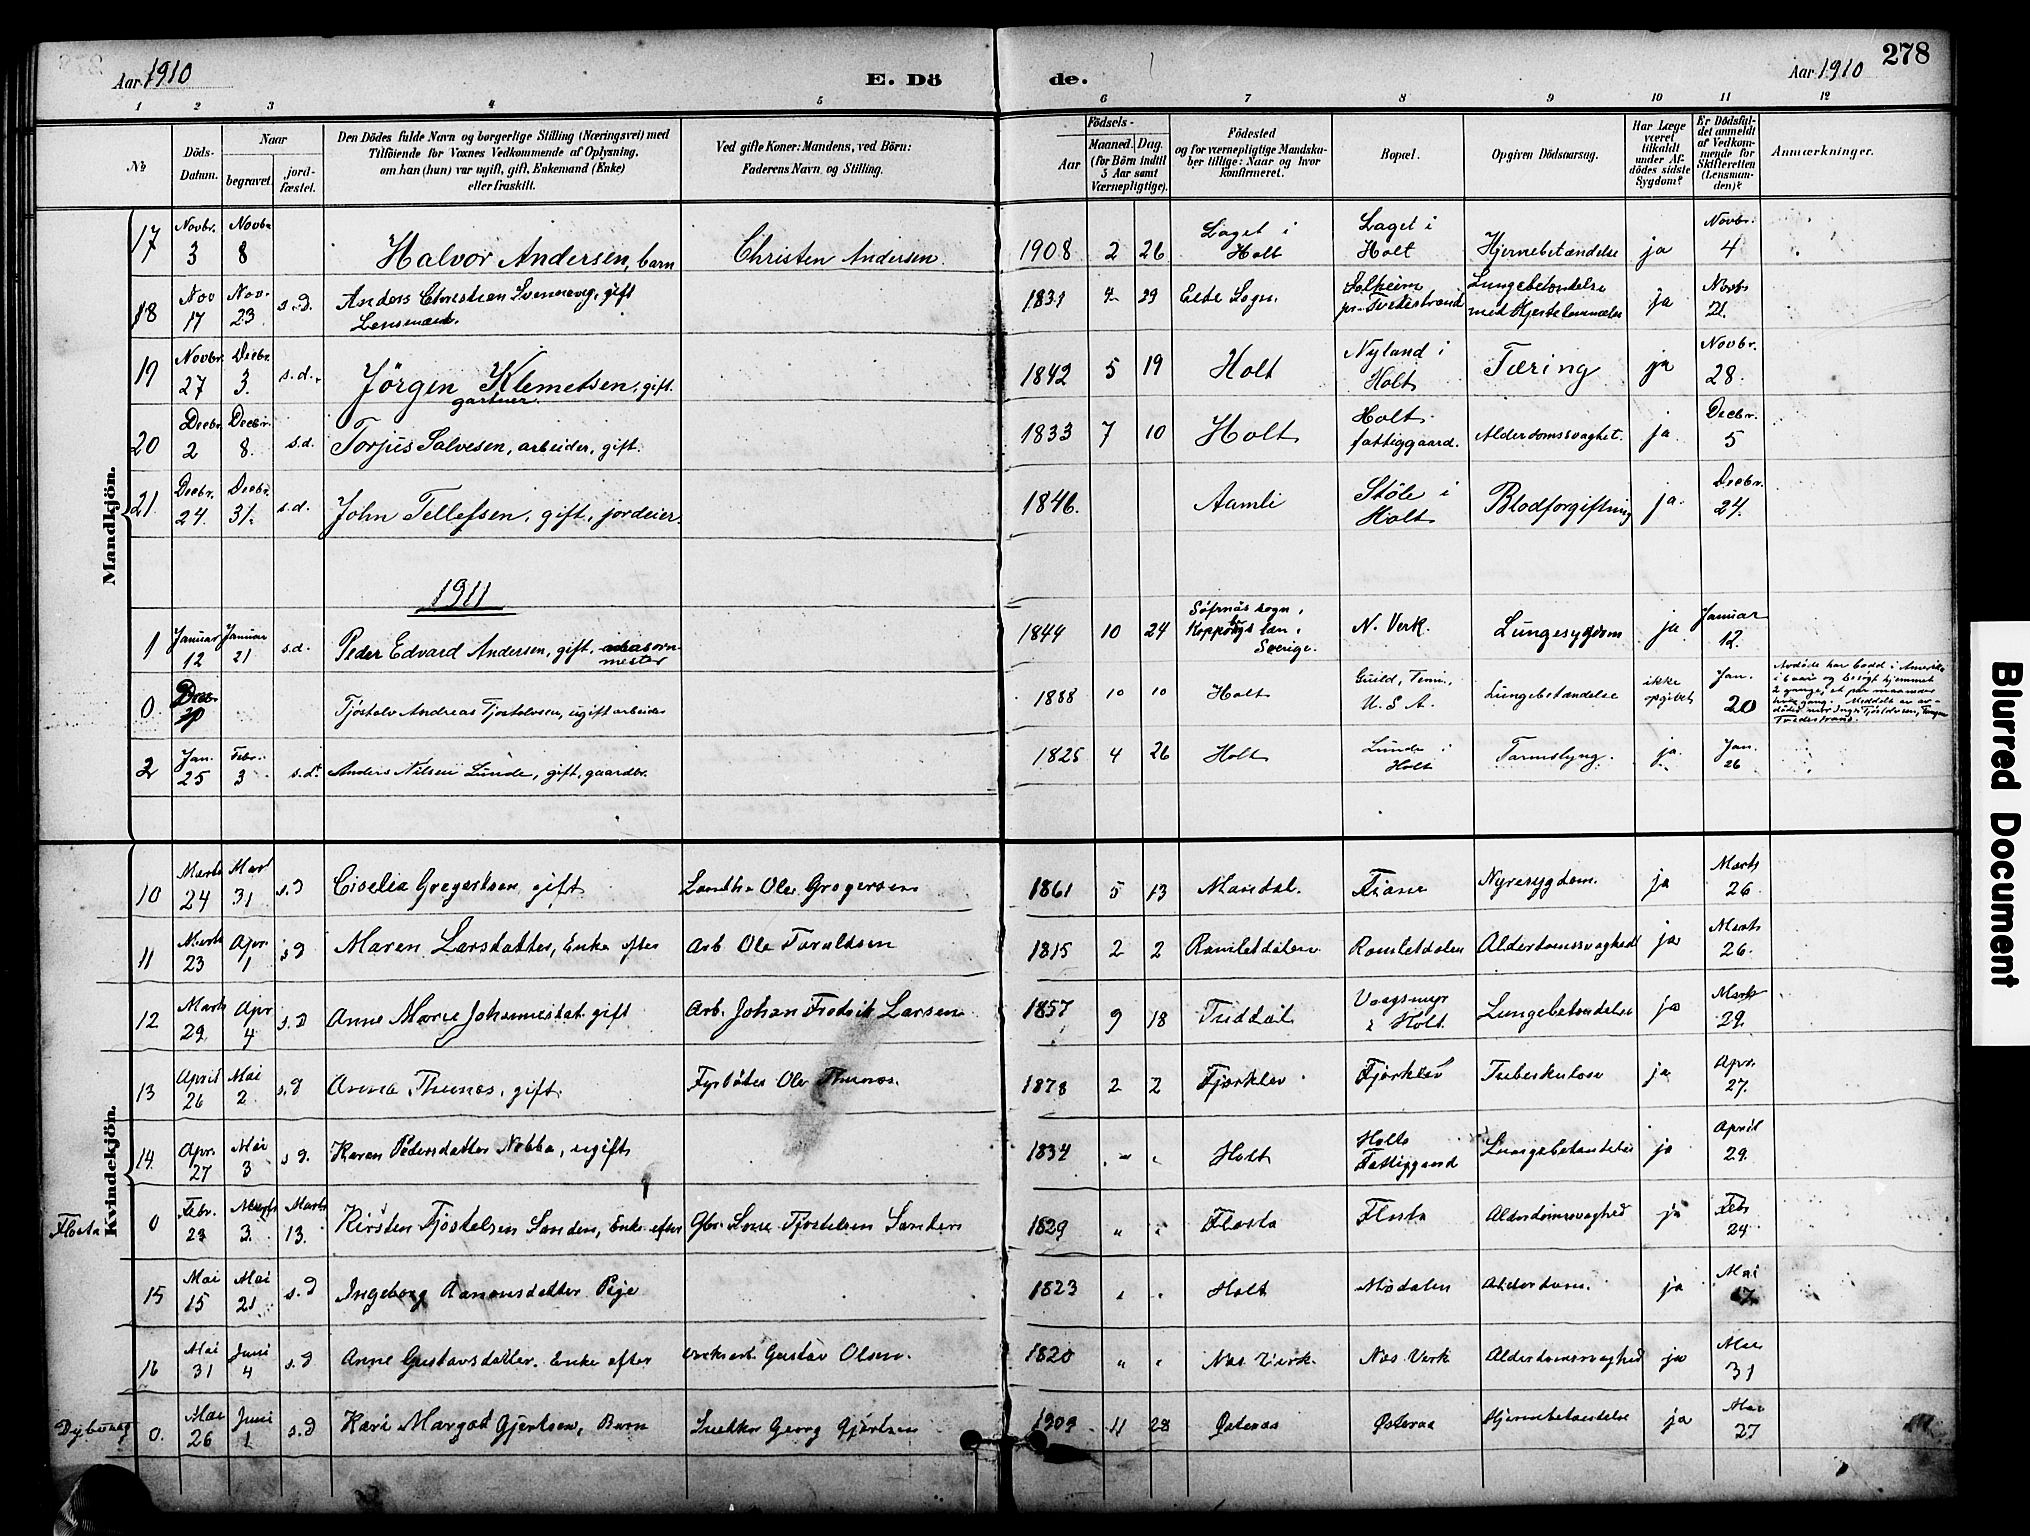 278
Aar 1910
E. Dö
de.
Aar 1910
1 2 3 4 5 6 7 8 9 10 11 12
№
Döds-
Datum.
Naar
begravet.
jord-
fæstet.
Den Dödes fulde Navn og borgerlige Stilling (Næringsvei) med
Tilföiende for Voxnes Vedkommende af Oplysning,
om han (hun) var ugift, gift, Enkemand (Enke)
eller fraskilt.
Ved gifte Koner: Mandens, ved Börn:
Faderens Navn og Stilling.
Födsels-
Aar
Maaned. Dag.
(for Börn indtil
5 Aar samt
Værnepligtige).
Födested
og for værnepligtige Mandska-
ber tillige: Naar og hvor
konfirmeret.
Bopæl.
Opgiven Dödsaarsag.
Har Læge
været
tilkaldt
under Af-
dödes sidste
Sygdom?
Er Dödsfal-
det anmeldt
af Vedkom-
mende for
Skifteretten
(Lensman-
den)?
Anmærkninger.
Mandkjön.
17 Novbr. 3 Novbr 8 Halvor Andersen, barn Christen Andersen 1908 2 26 Laget i Holt Laget i Holt Hjernebetændelse ja Novbr. 4
18 Nov 17 Nov. 23 s.d. Anders Christian gift Lensmand. 1831 4 29 Eide Sogn. Solheim pr. Tvedestrand Lungebetændelse med ja Novbr 21.
19 Novbr. 27 Decbr. 3. s.d. Jörgen Klemetsen, gift. gartner. 1842 5 19 Holt Nyland i Holt Tæring ja Novbr. 28.
20 Decbr. 2 Decbr. 8. s.d. Torjus Salvesen, arbeider, gift. 1833 7 10 Holt Holt fattiggaard. Alderdomssvaghet. ja Decbr. 5
21. Decbr. 24. Decbr. 31. s.d. John Tellefsen, gift, jordeier. 1846. Aamli Støle i Holt Blodforgiftning ja. Decbr. 24.
1911
1 Januar 12 Januar 21 s.d. Peder Edvard Andersen, gift, mester 1844 10 24 sogn, Kopparbergs læn, Sverige. N. Verk. Lungesygdom ja Januar 12.
0 Tjöstolv Andreas Tjostolvsen, ugift arbeider 1888 10 10 Holt Guild, Tenn., U.S.A. Lungebetændelse ikke opgivet Jan. 20 Avdøde har bodd i Amerika i 6 aar og besøgt hjemmet 2 gange, et par maaneder hver gang.
2 Jan. 25 Febr. 3 s.d. Anders Nilsen Lunde, gift, gaardbr. 1825 4 26 Holt Lunde i Holt Tarmslyng. ja Jan. 26
Kvindekjön.
10 Marts 24 Mart 31 s.d Ciselia Gregertsen gift Ole Gregersen 1861 5 13 Mandal. Fiane Nyresygdom. ja Marts 26
11 Marts 23 Apr. 1 s.d Maren Larsdatter, Enke efter Arb Ole Taraldsen 1815 2 2 Ramletdalen Ramletdalen Alderdomssvaghed ja Marts 26.
12 Marts 29 Apr 4 s.d Anne Marie Johannesdat. gift Arb. Johan Fredrik Larsen 1857 9 18 Vaagsmyr i Holt Lungebetændelse ja Marts 29.
13 April 26 Mai 2 s.d Anna Thunæs, gift Fyrbøter Ole Thunæs. 1878 2 2 Fjærklev Fjærklev Tuberkulose ja Apr. 27.
14 Apr. 27 Mai 3 s.d. Karen Pedersdatter Nebba, ugift 1834 Holt Holts Fattiggaard Lungebetændelse ja April 29.
Flosta 0 Febr. 23 Marts 3. Marts 13. Kirsten Tjøstelsen Sanden, Enke efter Gbr. Tjøstelsen Sanden 1829 " " Flosta Flosta Alderdomssvaghed ja Febr 24.
15 Mai 15 Mai 21 s.d Ingeborg Aanonsdatter Peje 1823 Holt Mødalen Alderdom. ja Mai 17.
16 Mai 31 Juni 4 s.d Anne Gustavsdatter. Enke efter Gustav Olsen. 1820 " " Næs Verk. Næs Verk Alderdomssvaghed ja Mai 31
Dybvaag 0. Mai 26 Juni 1 s.d Kari Margot Gjertsen, Barn Snedker Georg Gjertsen 1909 11 28 Østeraa Østeraa Hjernebetændelse ja Mai 27
Blurred Document